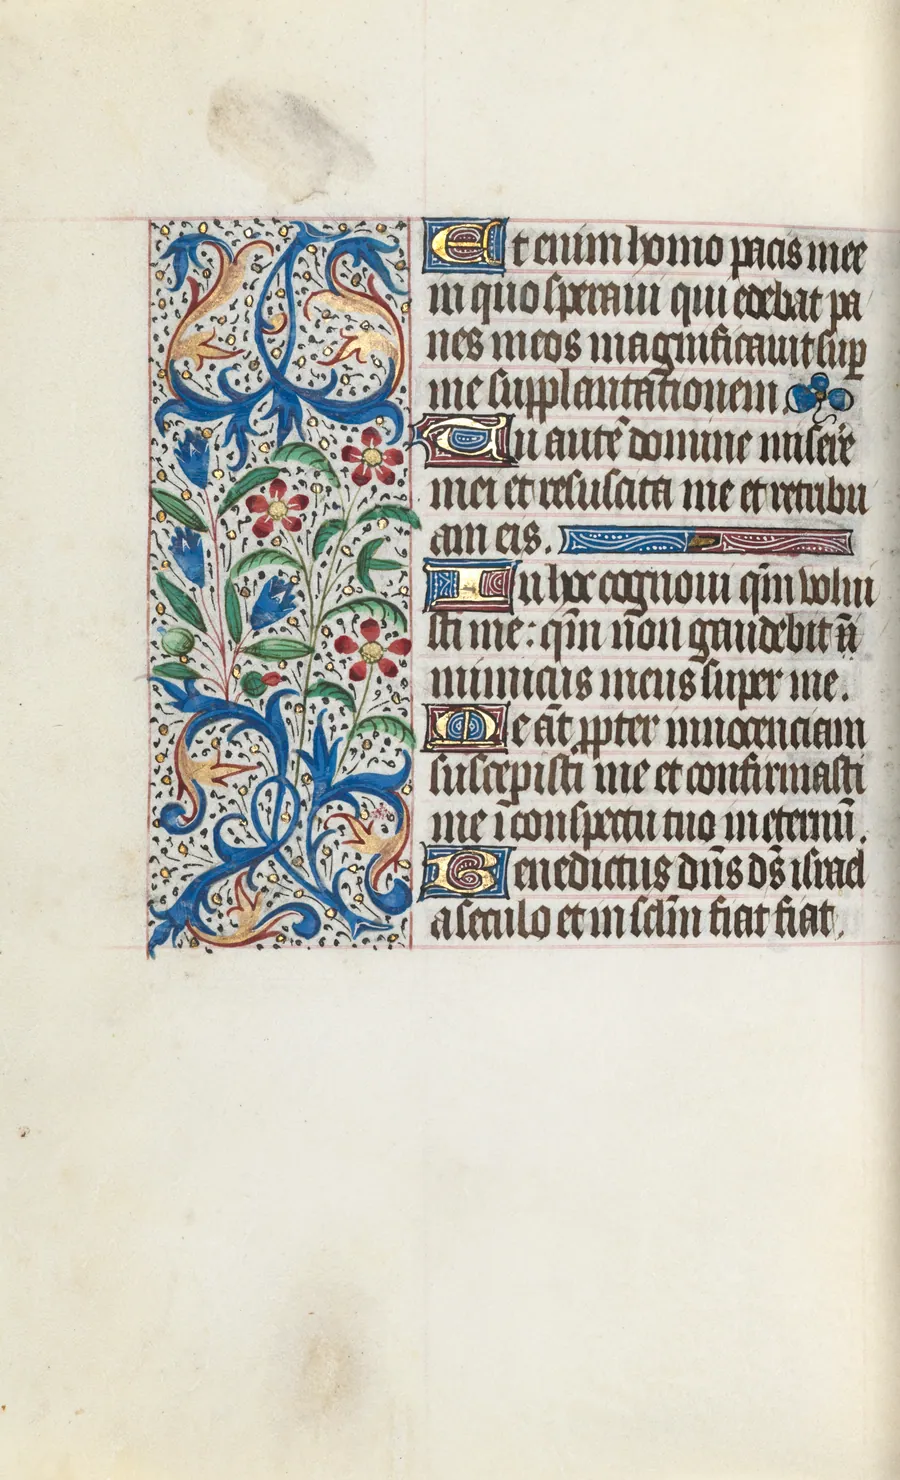 Et enim homo pacis mee
in quo speraui qui edebat pa
nes meos magnificauit sup̱
me supplantac̄ionem.
Tu autē domine miserē
mei et resuscita me et retribu
am eis.
In hoc cognoui qm̄ volui
sti me: qm̄ non gaudebit in̄
inimicus meus super me.
Me aūt ꝓpter innocenciam
suscepisti me et confirmasti
me ī conspectu tuo in eternū.
Benedictus dn̄s ds̄ israel
a seculo et in sclm̄ fiat fiat.